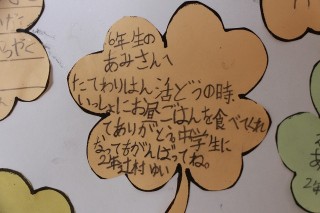 6年生の
あみさんへ
たてわりはん活どうの時、
いっしょにお昼ごはんを食べてくれ
てありがとう。中学生に
なってもがんばってね。
2年 辻村 ゆい